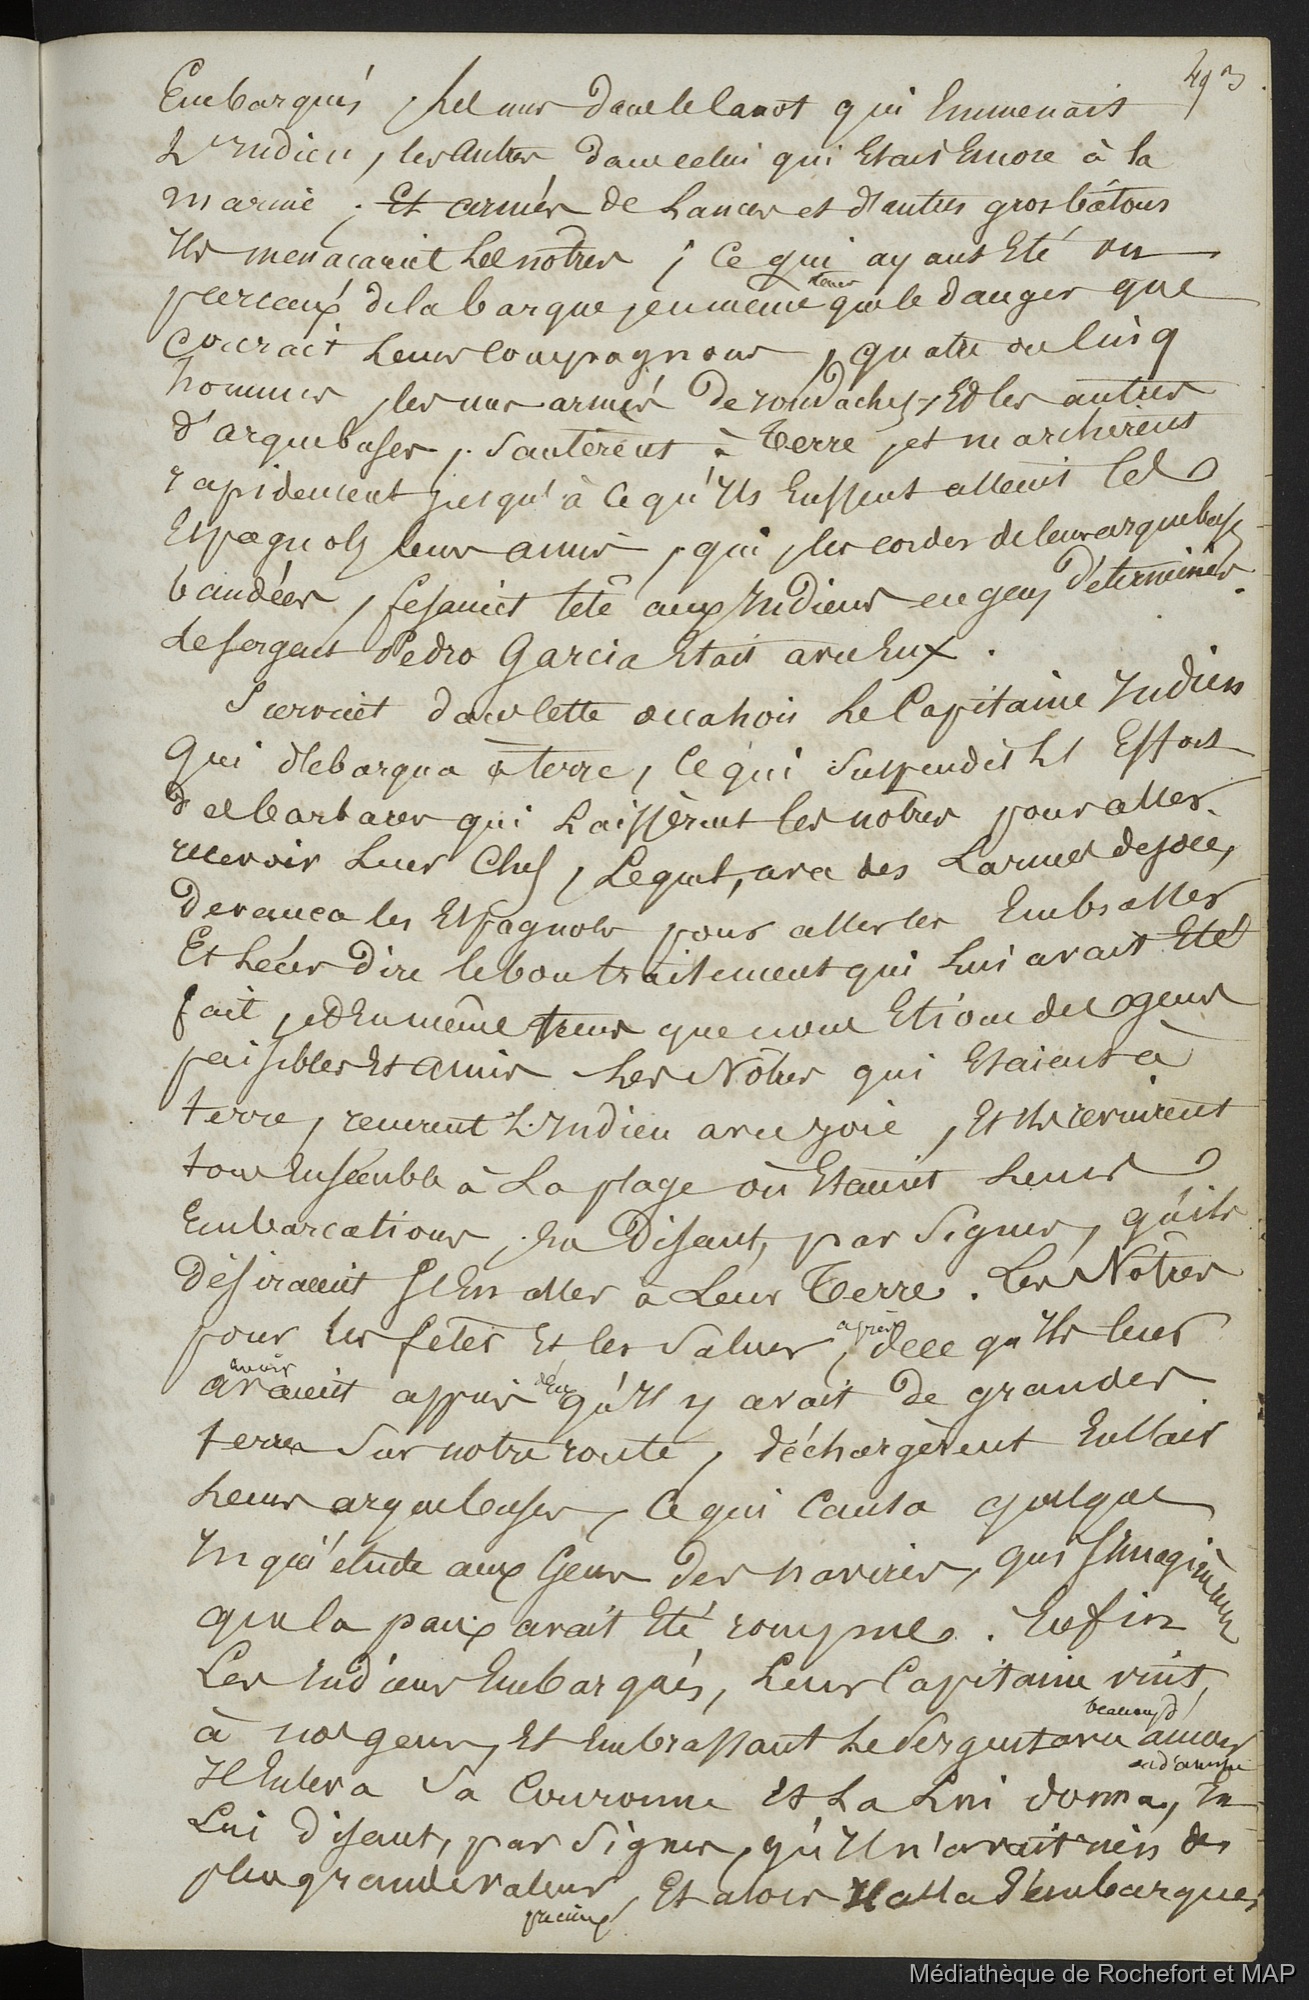 493
Embarqués, les uns dans le canot qui Emmenait
L'Indien, les autres dans celui qui Etait Encore à la
marine ; Et armés de Lances et d'autres gros bâtons
Ils menaçaient les notres ; Ce qui ayant Eté vu
par ceux de la barque, en même tems que le danger que
Courait Leurs Compagnons, quatre ou Cinq
hommes, les uns armés De rondaches, Et les autres
d'arquebuses, Sautèrent à Terre, et marchèrent
rapidement jusqu'à ce qu'Ils Eussent atteint les
Espagnols leurs amis, qui, les cordes de leurs arquebuses
bandées, fesaient tête aux Indiens en gens déterminés.
Le sergent Pedro Garcia Etait avec Eux.
Survint dans Cette occasion Le Capitaine Indien
Qui debarqua à terre, Ce qui Suspendit les Efforts
des barbares qui Laissèrent les notres pour aller
recevoir Leur Chef, Lequel, avec des Larmes de joie,
devança les Espagnols pour aller les Embrasser
Et Leur Dire le bon traitement qui Lui avait Eté
fait, et En même tems que nous Etions des gens
paisibles Et amis. Les Nôtres qui Etaient à
terre, reçurent L'Indien avec joie, Et Ils revinrent
tous Ensemble à La plage où Etaient Leurs
Embarcations, En Disant, par Signes, qu'ils
désiraient S'En aller à Leur Terre. Les Nôtres
pour les fêter Et les Saluer, après
qu'Ils leur
avoir
avaient appris qu'Il y avait De grandes
terres Sur notre route, déchargèrent En l'air
Leurs arquebuses, Ce qui Causa quelque
Inquiétude aux Gens des navires, qui S'Imaginèrent
que la paix avait Eté rompue. Enfin
Les Indiens Embarqués, Leur Capitaine vint
à nos gens, Et Embrassant Le Sergent avec beaucoup d'amour
Il Enleva Sa Couronne Et La Lui donna, En
Lui disant, par Signes, qu'Il n'avait rien de
plus grande valeur, Et alors Il alla S'embarquer
précieux
Médiathèque de Rochefort et MAP